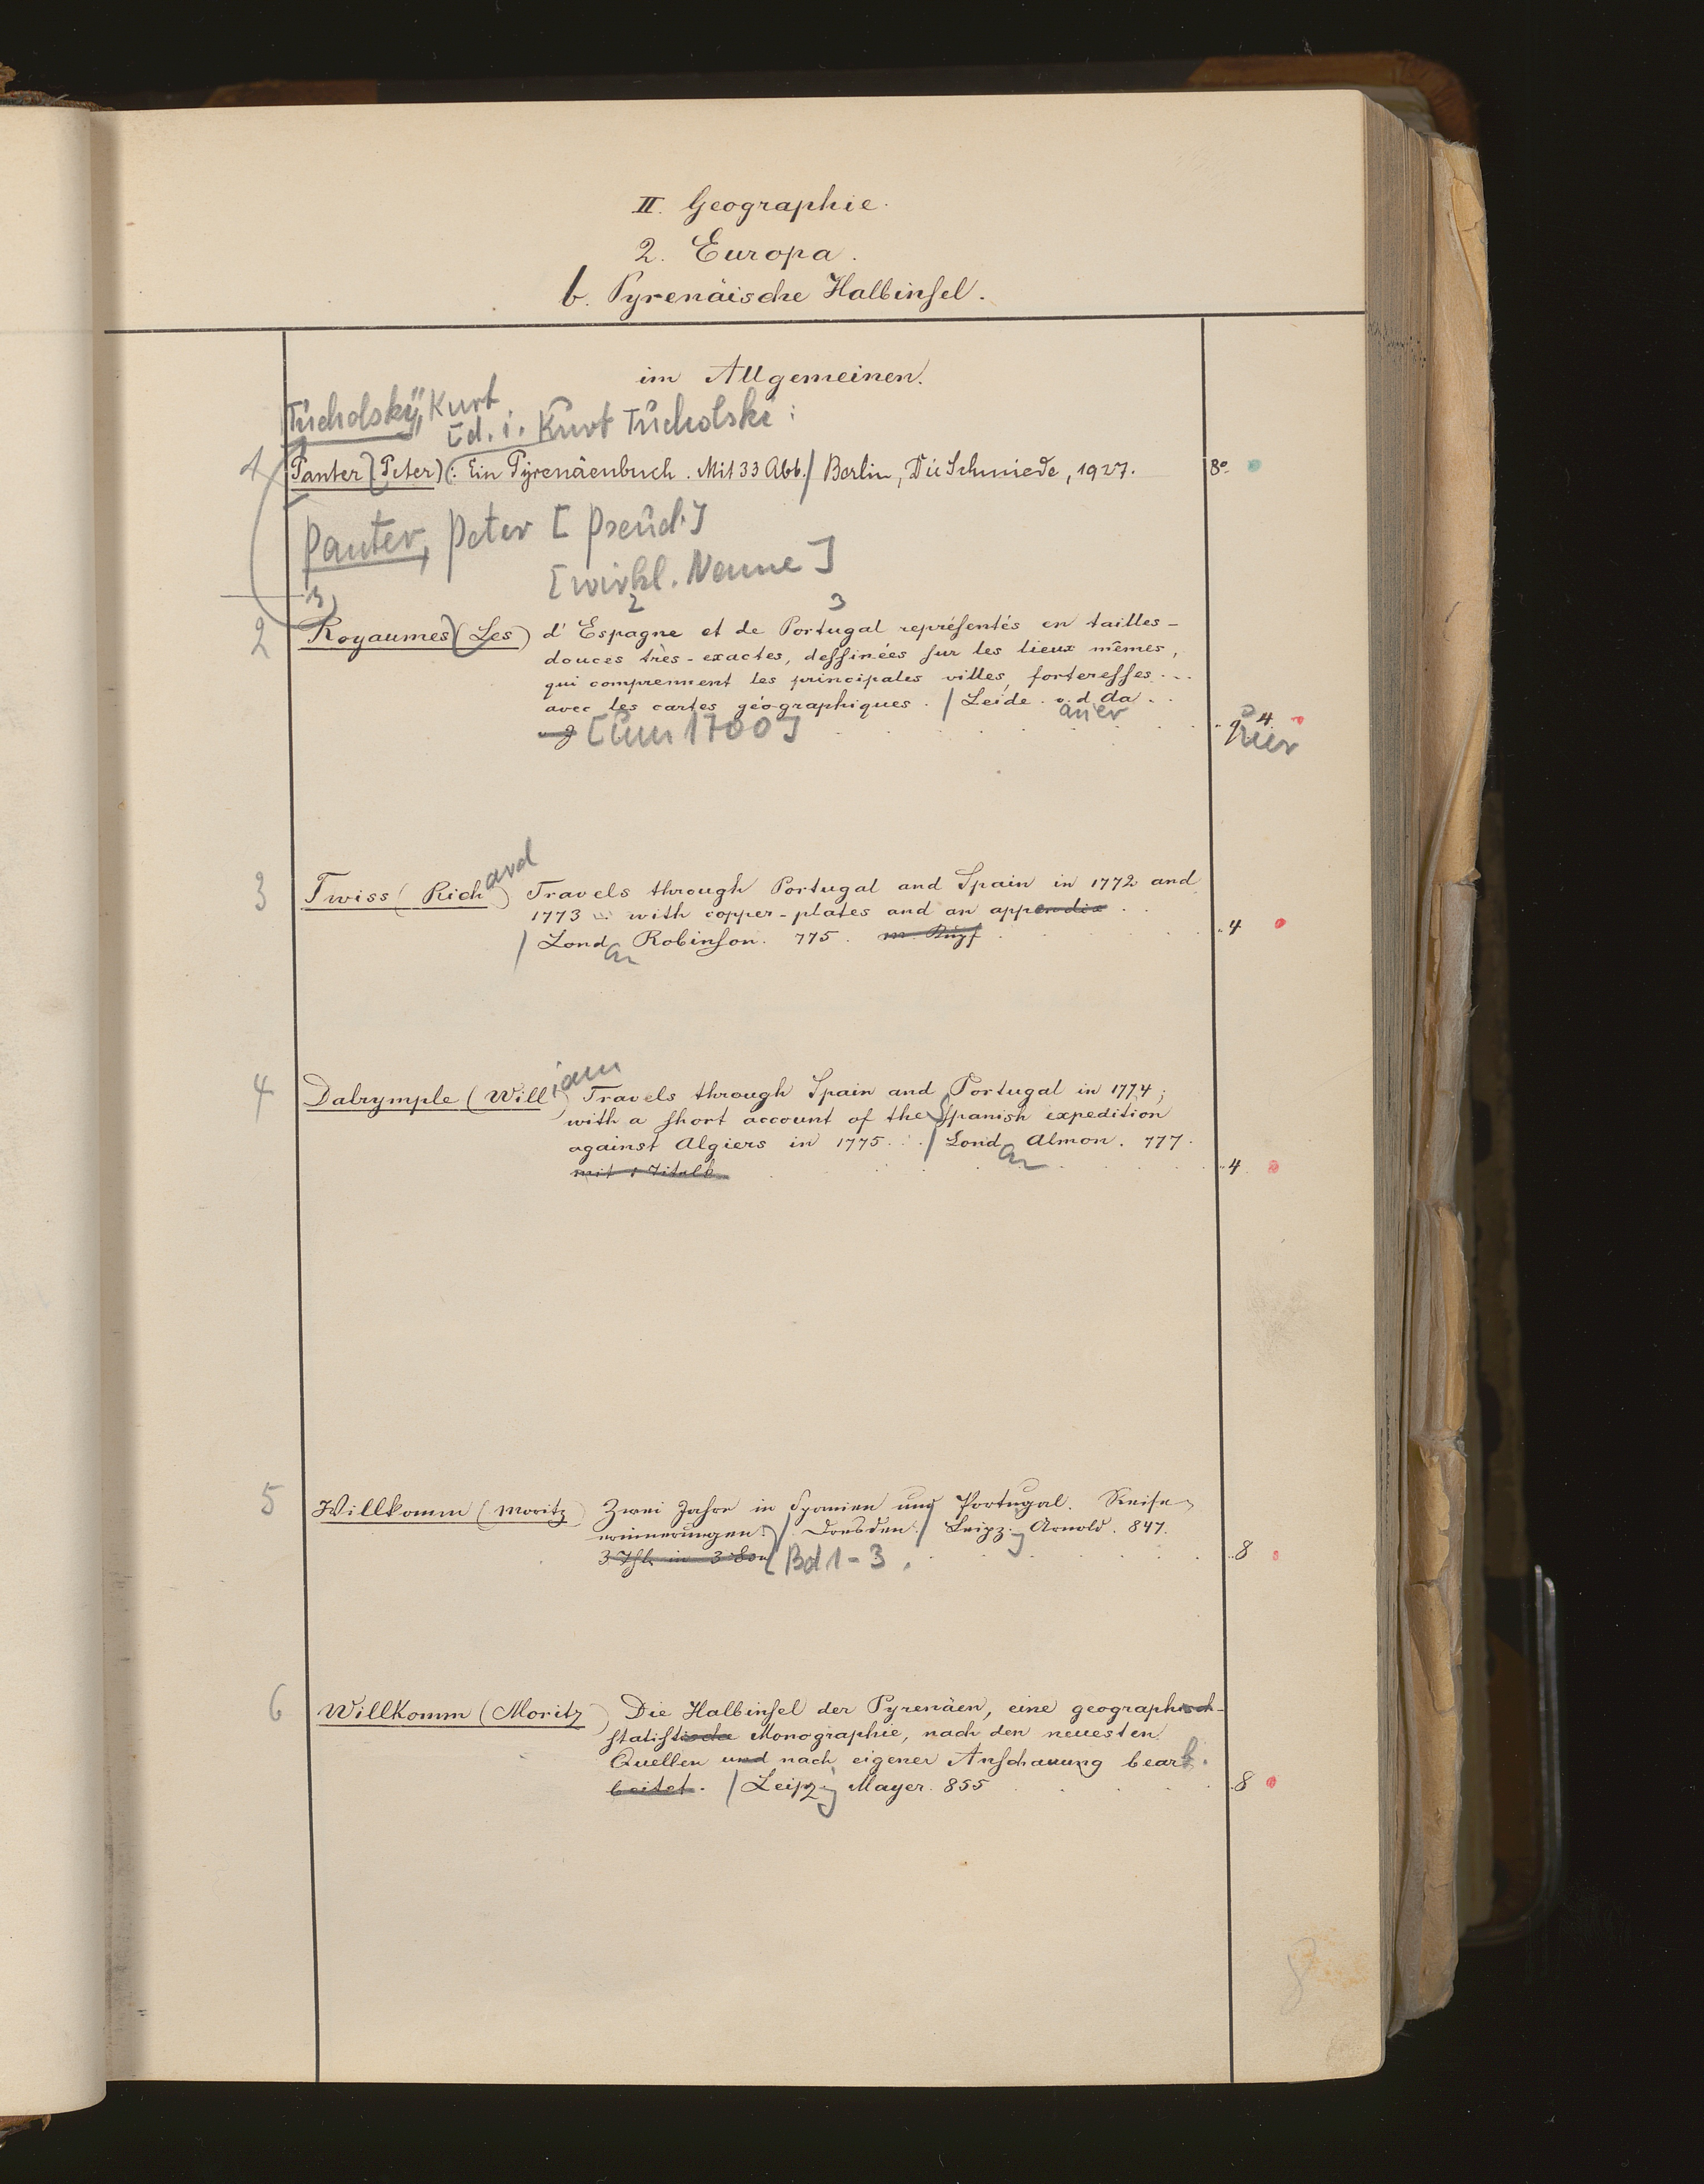 II. Geographie.
2. Europa.
b. Pyrenäische Halbinsel.
im Allgemeinen.
Tucholsky, Kurt
[d. i. Kurt Tucholski:
1 Panter (Peter): Ein Pyrenäenbuch. Mit 33 Abb. / Berlin, Die Schmiede, 1927. 8°.
Panter, Peter [Pseud.]
[wirkl. Name]
1) 2 3
2 Royaumes (Les) d'Espagne et de Portugal représentés en tailles-
douces très-exactes, dessinées sur les lieux mêmes,
qui comprennent les principales villes, forteresses...
avec les cartes géographiques. / Leide. v. d. Aa...
[Um 1700] q. 4
quer
3 Twiss (Richard) Travels through Portugal and Spain in 1772 and
1773 ... with copper-plates and an appendix
/ Lond. Robinson. 775. 4
4 Dalrymple (William) Travels through Spain and Portugal in 1774;
with a short account of the Spanish expedition
against Algiers in 1775... / Lond. Almon. 777.
mit 1 Titelb. 4
5 Willkomm (Moritz) Zwei Jahre in Spanien und Portugal. Reise-
erinnerungen. / Dresden. / Leipz. Arnold. 847.
[Bd 1-3. 8
6 Willkomm (Moritz) Die Halbinsel der Pyrenäen, eine geographisch-
statistische Monographie, nach den neuesten
Quellen und nach eigener Anschauung bearb.
beitet. / Leipzig Mayer. 855 8
8